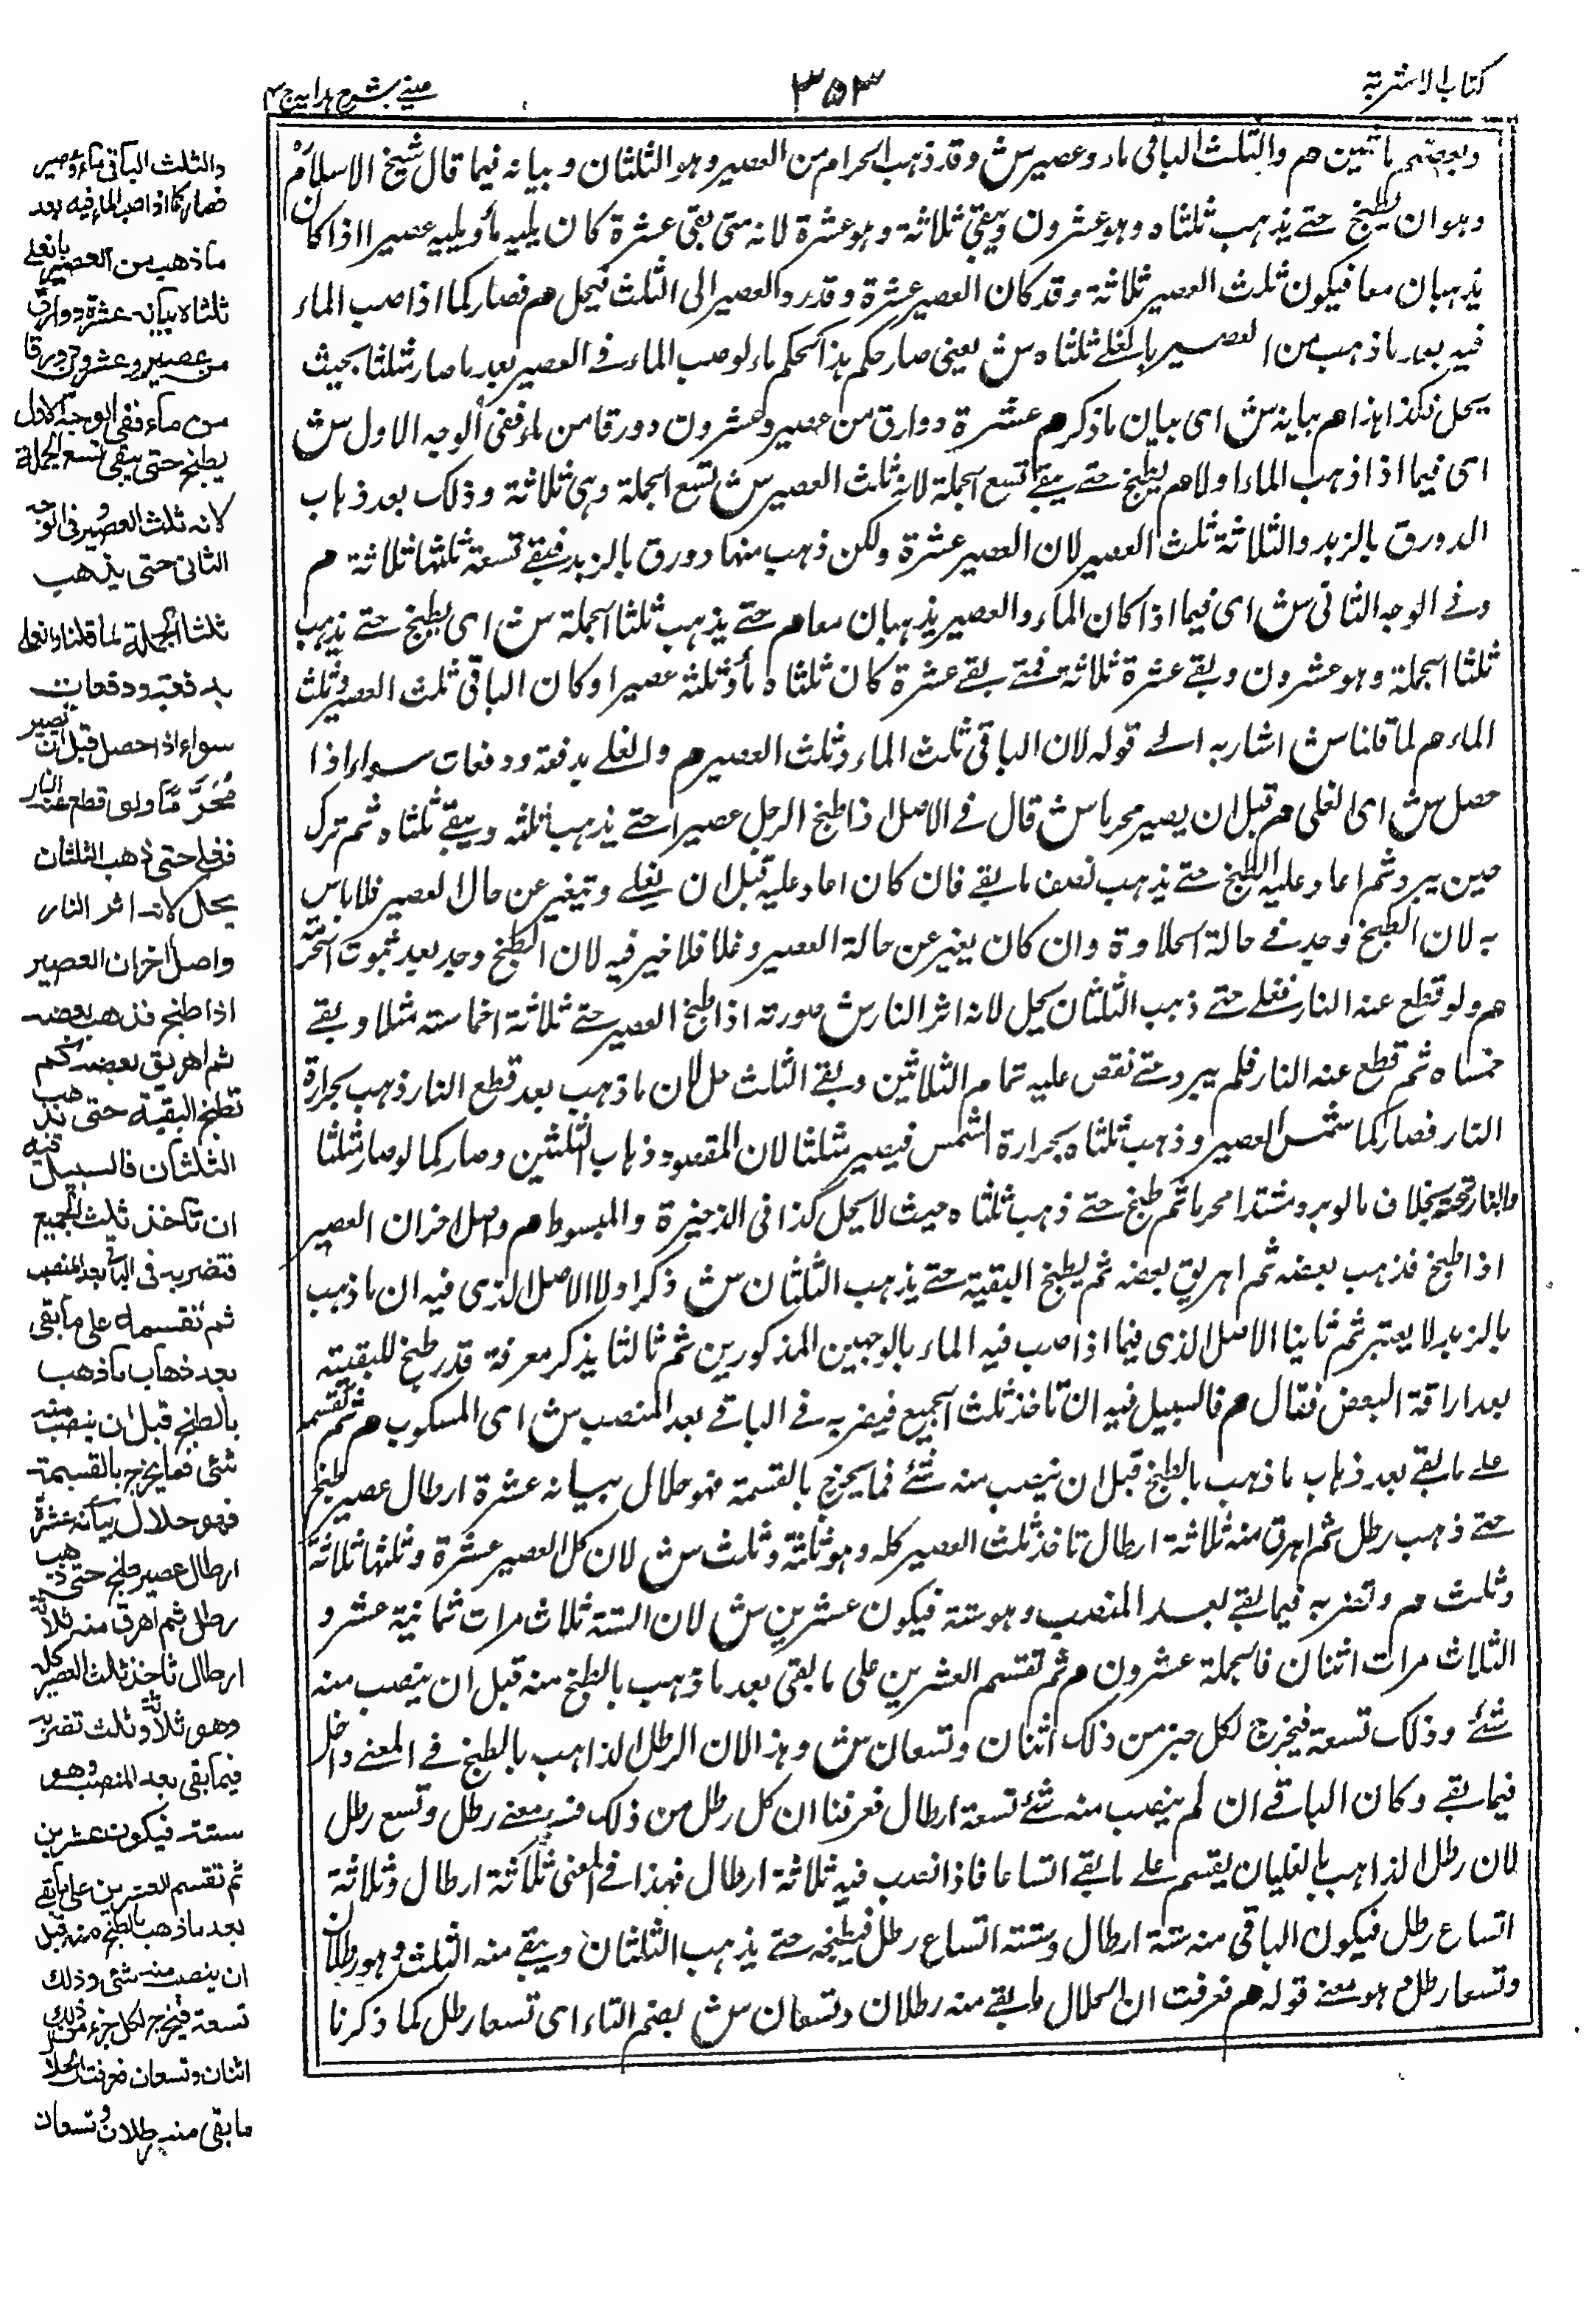 كتاب الاشربة
٣٥٣
عينے شرح هدايہ ج ٤
وبعضهم ما تبين هم والثلث الباقى ماء وعصير ش وقد ذهب الحرام من العصير وهو الثلثان وبيانه فيما قال شيخ الاسلام
وهو ان يطبخ حتے يذهب ثلثاه وهو عشرون ويبقي ثلاثة وهو عشرة لانه متى بقى عشرة كان يليه ماء ويليه عصيرا اذا كان
يذهبان معا فيكون ثلث العصير ثلاثة وقد كان العصير عشرة وقد رد العصير الى الثلث فيحل هم فصار كما اذا صب الماء
فيه بعد ما ذهب من العصير بالغلے ثلثاه ش يعنى صار حكم هذا كحكم ماء لو صب الماء فے العصير بعد ما صار مثلثا بحيث
يحل فكذا هذا هم بيانه ش اى بيان ما ذكر هم عشرة دوارق من عصير وعشرون دورقا من ماء ففى الوجه الاول ش
اى فيما اذا ذهب الماء اولا هم يطبخ حتے يبقے تسع الجملة لانه ثلث العصير ش تسع الجملة وهى ثلاثة وذلك بعد ذهاب
الدورق بالزبد والثلاثة ثلث العصير لان العصير عشرة ولكن ذهب منها دورق بالزبد فبقے تسعة ثلثها ثلاثة م
وفے الوجه الثانى ش اى فيما اذا كان الماء والعصير يذهبان معا م حتے يذهب ثلثا الجملة ش اى يطبخ حتے يذهب
ثلثا الجملة وهو عشرون ويبقے عشرة ثلاثة فمتے بقے عشرة كان ثلثاه ماء وثلثه عصيرا وكان الباقى ثلث العصير وثلث
الماء هم لما قلنا ش اشار به الے قوله لان الباقى ثلث الماء وثلث العصير م والغلے بدفعة ودفعات سواء اذا
حصل ش اى الغلى م قبل ان يصير محرما ش قال فے الاصل اذا طبخ الرجل عصيرا حتے يذهب ثلثه ويبقے ثلثاه ثم ترك
حين يبرد ثم اعاد عليه الطبخ حتے يذهب نصف ما بقے فان كان اعاد عليه قبل ان يغلے وتيغير عن حال العصير فلا باس
به لان الطبخ وجد فے حالة الحلاوة وان كان يغير عن حالة العصير وغلا فلا خير فيه لان الطبخ وجد بعد ثبوت الحرمة
هم ولو قطع عنه النار فغلے حتے ذهب الثلثان يحل لانه اثر النار ش صورته اذا طبخ العصير حتے ثلاثة اخماسته مثلا وبقے
خمساه ثم قطع عنه النار فلم يبرد حتے نقص عليه تمام الثلاثين وبقے الثلث حل لان ما ذهب بعد قطع النار ذهب بحرارة
النار فصار كما شمس العصير وذهب ثلثاه بحرارة الشمس فيصير مثلثا لان المقصود ذهاب الثلثين وصار كما لو صار مثلثا
والنار تحته بخلاف ما لو برد مشتدا محرما ثم طبخ حتے ذهب ثلثاه حيث لا يحل كذا فى الذخيرة والمبسوط هم واصل اخر ان العصير
اذا طبخ فذهب بعضه ثم اهريق بعضه ثم يطبخ البقية حتے يذهب الثلثان ش ذكر اولا الاصل الذى فيه ان ما ذهب
بالزبد لا يعتبر ثم ثانيا الاصل الذى فيما اذا صب فيه الماء بالوجهين المذكورين ثم ثالثا يذكر معرفة قدر طبخ للبقية
بعد اراقة البعض فقال هم فالسبيل فيه ان تاخذ ثلث الجميع فيضربه فے الباقے بعد المنصب ش اى المسكوب هم ثم تقسمه
علے ما بقے بعد ذهاب ما ذهب بالطبخ قبل ان ينصب منه شئے فما يخرج بالقسمة فهو حلال بيانه عشرة ارطال عصير طبخ
حتے ذهب رطل ثم اهرق منه ثلاثة ارطال تاخذ ثلث العصير كله وهو ثلثة وثلث ش لان كل العصير عشرة وثلثها ثلاثة
وثلث م وتضربه فيما بقے بعد المنصب وهو ستة فيكون عشرين ش لان الستة ثلاث مرات ثمانية عشر و
الثلاث مرات اثنان فالجملة عشرون م ثم تقسم العشرين على ما بقى بعد ما ذهب بالطبخ منه قبل ان ينصب منه
شئے وذلك تسعة فيخرج لكل جزء من ذلك اثنان وتسعان ش وهذا لان الرطل الذاهب بالطبخ فے المعنے داخل
فيما بقے وكان الباقے ان لم ينصب منه شئے تسعة ارطال فعرفنا ان كل رطل من ذلك فى معنے رطل وتسع رطل
لان رطل الذاهب بالغليان يقسم علے ما بقے اتساعا فاذا انصب فيه ثلاثة ارطال فهذا فے المعنى ثلاثة ارطال وثلاثة
اتساع رطل فيكون الباقى منه ستة ارطال وستة اتساع رطل فيطبخه حتے يذهب الثلثان ويبقے منه الثلث وهو رطلان
وتسعا رطل م وهو معنے قوله هم فعرفت ان الحلال ما بقے منه رطلان وتسعان ش بضم التاء اى تسعا رطل كما ذكرنا
والثلث الباقى ماء وعصير
فصار كما اذا صب الماء فيه بعد
ما ذهب من العصير بالغلے
ثلثاه بيانه عشرة دوارق
من عصير وعشرون دورقا
من ماء ففى الوجه الاول
يطبخ حتى يبقى تسع الجملة
لانه ثلث العصير وفى الوجه
الثانى حتى يذهب
ثلثا الجملة لما قلنا والغلے
بدفعة ودفعات
سواء اذا حصل قبل ان تصير
مُحَرَّمًا ولو قطع عنه النار
فغلے حتى ذهب الثلثان
يحل لانه اثر النار
واصل اخر ان العصير
اذا طبخ فذهب بعضه
ثم اهريق بعضه كم
تطبخ البقية حتى تذهب
الثلثان فالسبيل فيه
ان تاخذ ثلث الجميع
فتضربه فى الباقى بعد المنصب
ثم تقسمه على ما بقى
بعد ذهاب ما ذهب
بالطبخ قبل ان ينصب منه
شئى فما يخرج بالقسمة
فهو حلال بيانه عشرة
ارطال عصير طبخ حتى ذهب
رطل ثم اهرق منه ثلاثة
ارطال تاخذ ثلث العصير كله
وهو ثلاثة وثلث تضربه
فيما بقى بعد المنصب وهو
ستة فيكون عشرين
ثم تقسم العشرين على ما بقے
بعد ما ذهب بالطبخ منه قبل
ان ينصب منه شئى وذلك
تسعة فيخرج لكل جزء من ذلك
اثنان وتسعان فعرفت ان الحلال
ما بقى منه رطلان وتسعان